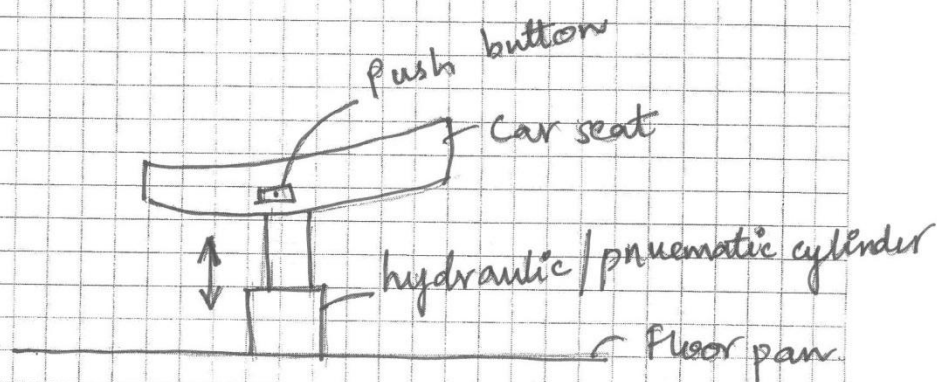 push button
car seat
hydraulic/pnuematic cylinder
Floor pan